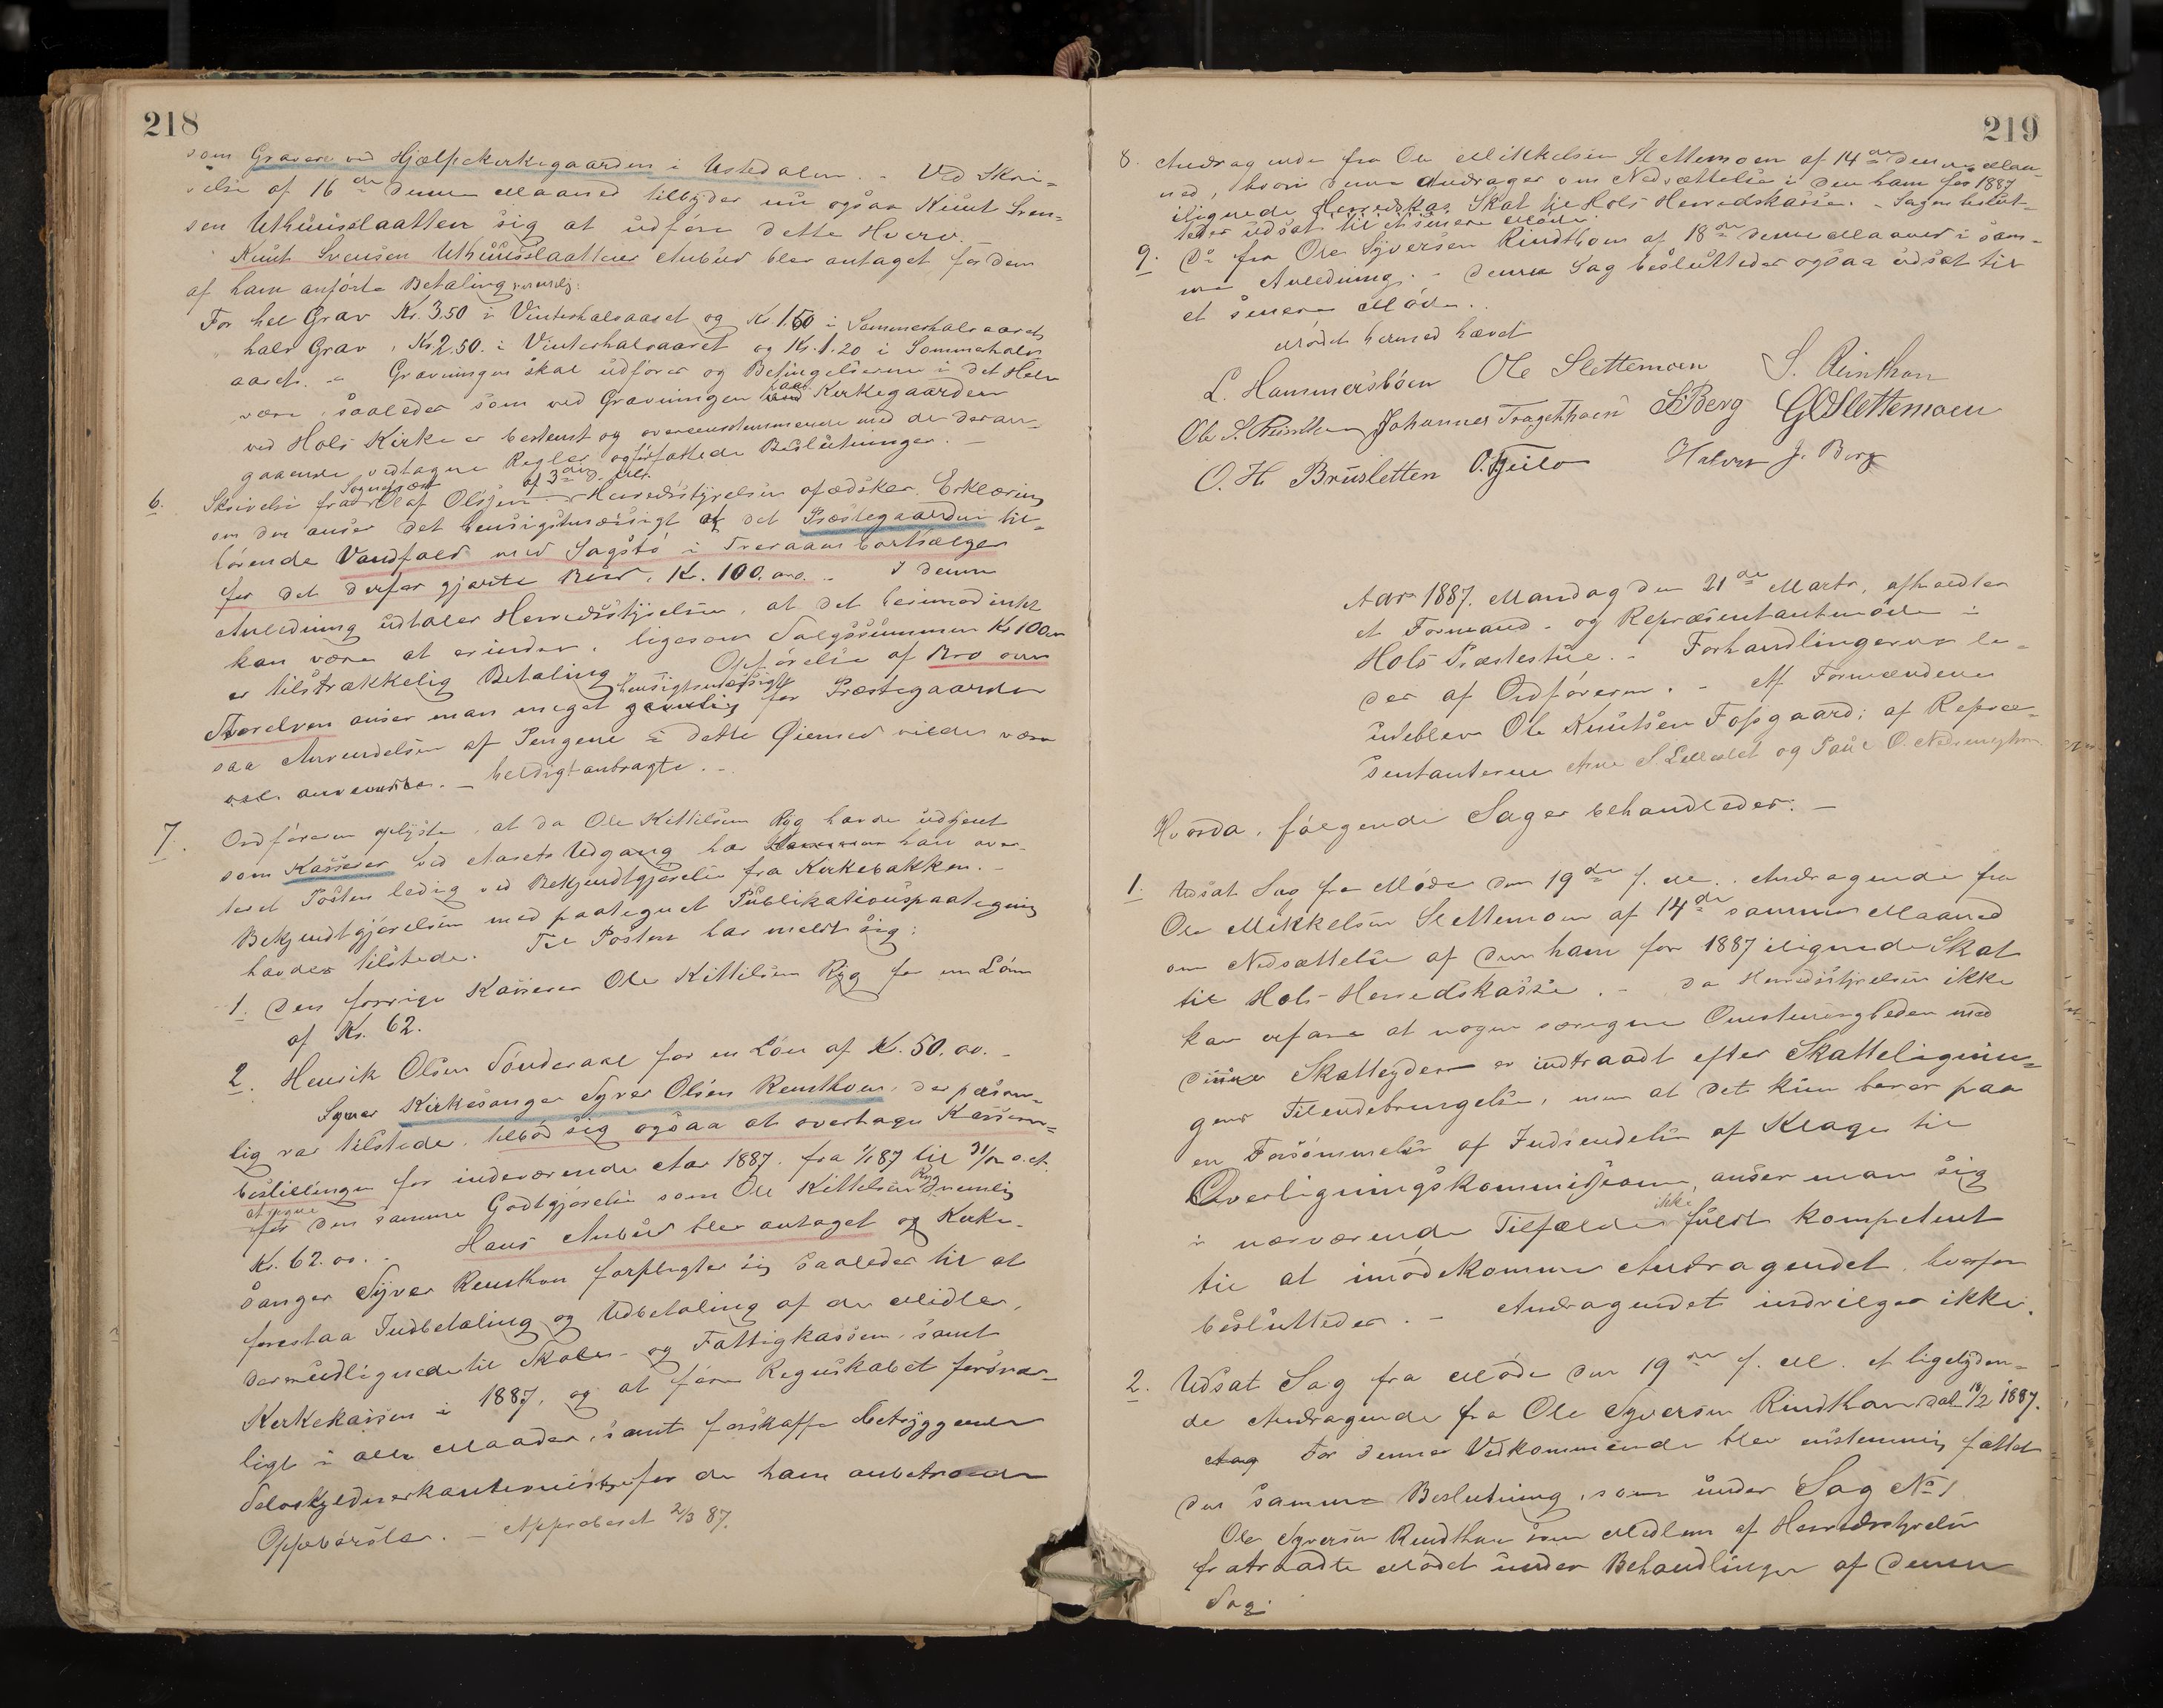 218
som Graver ved Hjælpekirkegaarden i Ustedalen. - Ved Skri-
velse af 16de denne Maaned tilbyder nu ogsaa Knut Sven-
sen Uthuusslaatten sig at udføre dette Hverv.
Knut Svensen Uthuusslaattens Anbud blev antaget for den
af ham anførte Betaling nemlig:
For hel Grav Kr. 3.50 i Vinterhalvaaret og Kr. 1.60 i Sommerhalvaaret
" halv Grav " Kr. 2.50. i Vinterhalvaaret og Kr. 1.20 i Sommerhalv-
aaret. - Gravningen skal udføres og Betingelserne i det Hele
være, saaledes som ved Gravningen paa Kirkegaarden
ved Hols Kirke er bestemt og overensstemmende med de deran-
gaaende vedtagne Regler og fattede Beslutninger. -
6. Skrivelse fra Sogneprest Olaf Olssen af 3die d. M. Herredsstyrelsen afædsker Erklæring
om den anser det hensigtsmæssigt at det Præstegaarden til-
hørende Vandfald med Sagstø i Traaen bortsælges
for det derfor gjorte Bud, Kr. 100.00. - I denne
Anledning udtaler Herredsstyrelsen, at det herimod intet
kan være at erindre, ligesom Salgssummen Kr 100.00
er tilstrækkelig Betaling. - Opførelse af Bro over
Storelven anser man meget hensigtsmæssigt for Præstegaarden
saa Anvendelsen af Pengene i dette Øiemed vilde være
vel anvendte. - heldigt anbragte. -
7. Ordføreren oplyste, at da Ole Kittilsen Ryg havde udtjent
som Kasserer ved Aarets Udgang har han aver-
teret Posten ledig ved Bekjendtgjørelse fra Kirkebakken. -
Bekjendtgjørelsen med paategnet Publikationspaategning
havdes tilstede. Til Posten har meldt sig:
1. Den forrige Kasserer Ole Kittilsen Ryg for en Løn
af Kr. 62.
2. Henrik Olsen Sønderaal for en Løn af Kr. 50.00. -
Kirkesanger Syver Olsen Reinthon, der person-
lig var tilstede, tilbød sig ogsaa at overtage Kasserer-
bestillingen for indeværende Aar 1887. fra 1/1 87 til 31/12 a. ct.
at regne
for den samme Godtgjørelse som Ole Kittilsen Ryg nemlig
Kr. 62.00. - Hans Anbud blev antaget og Kirke-
sanger Syver Reinthon forpligter sig saaledes til at
forestaa Indbetaling og Udbetaling af de Midler,
der er udlignede til Skole- og Fattigkassen, samt
Kirkekassen i 1887, og at føre Regnskabet forsvar-
ligt i alle Maader, samt forskaffe betryggende
Selvskyldnerkautionister for de ham anbetroede
Oppebørsler. - Approberet 2/3 87.
219
8. Andragende fra Ole Mikkelsen Slettemoen af 14de denne Maa-
ned, hvori denne andrager om Nedsættelse i den ham for 1887
ilignede Herredskas Skat til Hols Herredskasse. - Sagen beslut-
tedes udsat til et senere Møde.
9. Do fra Ole Syversen Rindthon af 18de denne Maaned i sam-
me Anledning. - Denne Sag besluttedes ogsaa udsat til
et senere Møde.
Mødet hermed hævet
L. Hammersbøen Ole Slettemoen S. Reinthon
Ole S. Reinthon Johannes Tragethoen S. Berg G O Slettemoen
O. H. Brusletten O. Geilo Halvor J. Berg
Aar 1887. Mandag den 21de Marts, afholdtes
et Formand- og Repræsentantmøde i
Hols Præstestue. - Forhandlingerne le-
des af Ordføreren. - Af Formændene
udeblev Ole Knutsen Fossgaard; af Repræ-
sentanterne Arne S. og Paul O.
Hvorda, følgende Sager behandledes: -
1. Udsat Sag fra Møde den 19de f. M. Andragende fra
Ole Mikkelsen Slettemoen af 14de samme Maaned
om Nedsættelse af den ham for 1887 ilignede Skat
til Hols Herredskasse. - Da Herredsstyrelsen ikke
kan erfare at nogen særegne Omstændigheder med
disse Skatteydere er indtraadt efter Skatteligning-
gens Tilendebringelse, men at det kun beror paa
en Forsømmelse af Indsendelse af Klage til
Overligningskommissionen, anser man sig
i nærværende Tilfælde ikke fuldt kompetent
til at imødekomme Andragendet, hvorfor
besluttedes. - Andragendet indvilges ikke.
2. Udsat Sag fra Møde den 19de f. M. et ligelyden-
de Andragende fra Ole Syversen Rindthon dat. 18/2 1887.
For dennes Vedkommende blev enstemmig fattet
den samme Beslutning, som under Sag No 1
Ole Syversen Rindthon som Medlem af Herredsstyrelsen
fratraadte Mødet under Behandlingen af denne
Sag.